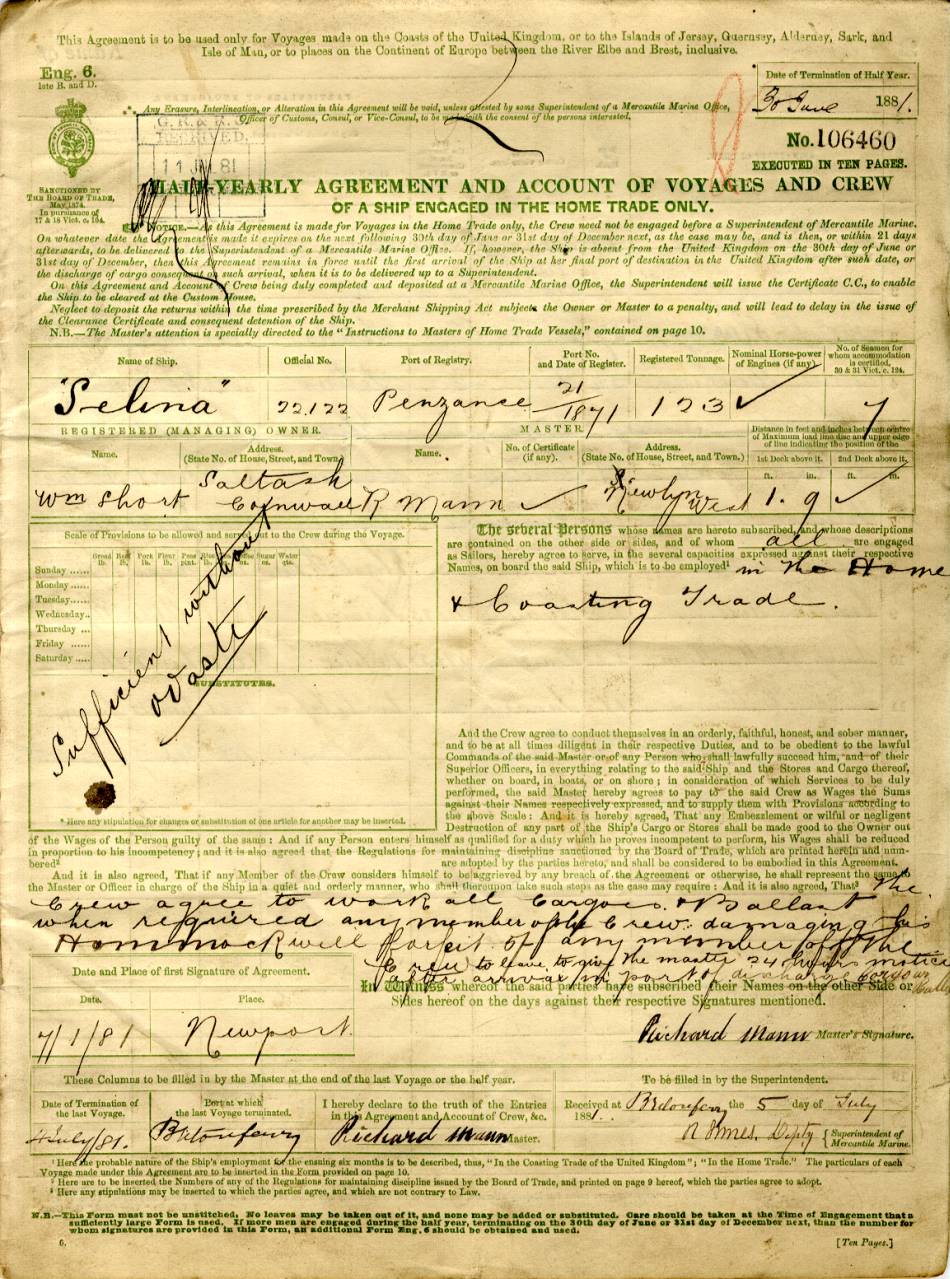 This Agreement is to be used only for Voyages made on the Coasts of the United Kingdom, or to the Islands of Jersey, Guernsey, Alderney, Sark, and
Isle of Man, or to places on the Continent of Europe between the River Elbe and Brest, inclusive.
Eng. 6.
late B. and D.
Date of Termination of Half Year.
30 June 1881.
Any Erasure, Interlineation, or Alteration in this Agreement will be void, unless attested by some Superintendent of a Mercantile Marine Office,
Officer of Customs, Consul, or Vice-Consul, to be made with the consent of the persons interested.
No. 106460
EXECUTED IN TEN PAGES.
SANCTIONED BY
THE BOARD OF TRADE,
May, 1874.
In pursuance of
17 & 18 Vict. c. 104.
HALF-YEARLY AGREEMENT AND ACCOUNT OF VOYAGES AND CREW
OF A SHIP ENGAGED IN THE HOME TRADE ONLY.
NOTICE.—As this Agreement is made for Voyages in the Home Trade only, the Crew need not be engaged before a Superintendent of Mercantile Marine.
On whatever date the Agreement is made it expires on the next following 30th day of June or 31st day of December next, as the case may be, and is then, or within 21 days
afterwards, to be delivered to the Superintendent of a Mercantile Marine Office. If, however, the Ship is absent from the United Kingdom on the 30th day of June or
31st day of December, then this Agreement remains in force until the first arrival of the Ship at her final port of destination in the United Kingdom after such date, or
the discharge of cargo consequent on such arrival, when it is to be delivered up to a Superintendent.
On this Agreement and Account of Crew being duly completed and deposited at a Mercantile Marine Office, the Superintendent will issue the Certificate C.C., to enable
the Ship to be cleared at the Custom House.
Neglect to deposit the returns within the time prescribed by the Merchant Shipping Act subjects the Owner or Master to a penalty, and will lead to delay in the issue of
the Clearance Certificate and consequent detention of the Ship.
N.B.—The Master's attention is specially directed to the "Instructions to Masters of Home Trade Vessels," contained on page 10.
Name of Ship. Official No. Port of Registry. Port No. and Date of Register. Registered Tonnage. Nominal Horse-power of Engines (if any). No. of Seamen for whom accommodation is certified. 30 & 31 Vict. c. 124.
"Selina" 22,122 Penzance 21/1871 123 7
REGISTERED (MANAGING) OWNER. MASTER. Distance in feet and inches between centre of Maximum load line disc and upper edge of line indicating the position of the
Name. Address. (State No. of House, Street, and Town) Name. No. of Certificate (if any). Address. (State No. of House, Street, and Town.) 1st Deck above it. 2nd Deck above it.
ft. in. ft. in.
Wm Short Saltash Cornwall R Mann Newlyn West 1. 9
Scale of Provisions to be allowed and served out to the Crew during the Voyage.
Sunday ......
Monday ......
Tuesday......
Wednesday..
Thursday ...
Friday ......
Saturday.....
Sufficient without
waste
SUBSTITUTES.
* Here any stipulation for changes or substitution of one article for another may be inserted.
The several Persons whose names are hereto subscribed, and whose descriptions
are contained on the other side or sides, and of whom all are engaged
as Sailors, hereby agree to serve, in the several capacities expressed against their respective
Names, on board the said Ship, which is to be employed¹ in the Home
& Coasting Trade.
And the Crew agree to conduct themselves in an orderly, faithful, honest, and sober manner,
and to be at all times diligent in their respective Duties, and to be obedient to the lawful
Commands of the said Master or of any Person who shall lawfully succeed him, and of their
Superior Officers, in everything relating to the said Ship and the Stores and Cargo thereof,
whether on board, in boats, or on shore; in consideration of which Services to be duly
performed, the said Master hereby agrees to pay to the said Crew as Wages the Sums
against their Names respectively expressed, and to supply them with Provisions according to
the above Scale: And it is hereby agreed, That any Embezzlement or wilful or negligent
Destruction of any part of the Ship's Cargo or Stores shall be made good to the Owner out
of the Wages of the Person guilty of the same: And if any Person enters himself as qualified for a duty which he proves incompetent to perform, his Wages shall be reduced
in proportion to his incompetency; and it is also agreed that the Regulations for maintaining discipline sanctioned by the Board of Trade, which are printed herein and num-
bered² are adopted by the parties hereto, and shall be considered to be embodied in this Agreement.
And it is also agreed, That if any Member of the Crew considers himself to be aggrieved by any breach of the Agreement or otherwise, he shall represent the same to
the Master or Officer in charge of the Ship in a quiet and orderly manner, who shall thereupon take such steps as the case may require: And it is also agreed, That³ the
Crew agree to work all Cargoes & Ballast
when required any member of the Crew damaging his
Hammock will forfeit 5/- any member off the
Crew to leave to give the master 24 hours notice
after arrival in port of discharge
In Witness whereof the said parties have subscribed their Names on the other Side or
Sides hereof on the days against their respective Signatures mentioned.
Date and Place of first Signature of Agreement.
Date. Place.
7/1/81 Newport.
Richard Mann Master's Signature.
These Columns to be filled in by the Master at the end of the last Voyage or the half year.
To be filled in by the Superintendent.
Date of Termination of the last Voyage. Port at which the last Voyage terminated. I hereby declare to the truth of the Entries in this Agreement and Account of Crew, &c.
4 July/81. Britonferry Richard Mann Master.
Received at Britonferry the 5 day of July
1881. Depty Superintendent of Mercantile Marine.
¹ Here the probable nature of the Ship's employment for the ensuing six months is to be described, thus, "In the Coasting Trade of the United Kingdom"; "In the Home Trade." The particulars of each
Voyage made under this Agreement are to be inserted in the Form provided on page 10.
² Here are to be inserted the Numbers of any of the Regulations for maintaining discipline issued by the Board of Trade, and printed on page 9 hereof, which the parties agree to adopt.
³ Here any stipulations may be inserted to which the parties agree, and which are not contrary to Law.
N.B.—This Form must not be unstitched. No leaves may be taken out of it, and none may be added or substituted. Care should be taken at the Time of Engagement that a
sufficiently large Form is used. If more men are engaged during the half year, terminating on the 30th day of June or 31st day of December next, than the number for
whom signatures are provided in this Form, an additional Form Eng. 6 should be obtained and used.
6.
[Ten Pages.]